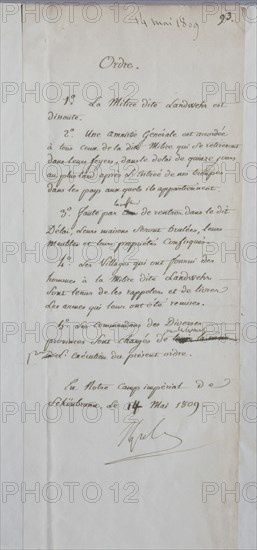 14 mai 1809
93.
Ordre.
1º. La Milice dite Landwehr est
dissoute.
2º. Une Amnistie Générale est accordée
à tous ceux de la dite Milice qui se retireront
dans leurs foyers, dans le délai de quinze jours
au plus tard après l'entrée de nos troupes
dans les pays auxquels ils appartiennent.
3º. faute par de rentrer dans le dit
Délai, leurs maisons seront brulées, leurs
Meubles et leurs propriétés Confisqués.
4º. Les Villages qui ont fourni des
hommes à la Milice dite Landwehr
sont tenus de les rappeller et de livrer
Les armes qui leur ont été remises.
5º. Les Commandans des Diverses
provinces sont chargés de
L'exécution du présent ordre.
En Notre Camp impérial de
Schönbrunn, Le 14 Mai 1809
PHOTO 12